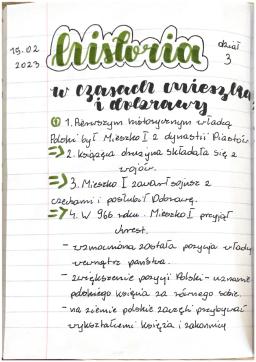 19.02
2023
historia
dział
3
w czasach mieszka
i dobrawy
1. Pierwszym historycznym władcą
Polski był Mieszko I z dynastii Piastów
=> 2. Książęca drużyna składała się z
wojów.
=> 3. Mieszko I zawarł sojusz z
czechami i poślubił Dobrawę.
=> 4. W 966 roku. Mieszko I przyjął
chrzest.
- wzmocniona została pozycja władcy
wewnątrz państwa.
- zwiększenie pozycji Polski - uznanie
polskiego księcia za równego sobie.
- na ziemie polskie zaczęli przybywać
wykształceni księża i zakonnicy